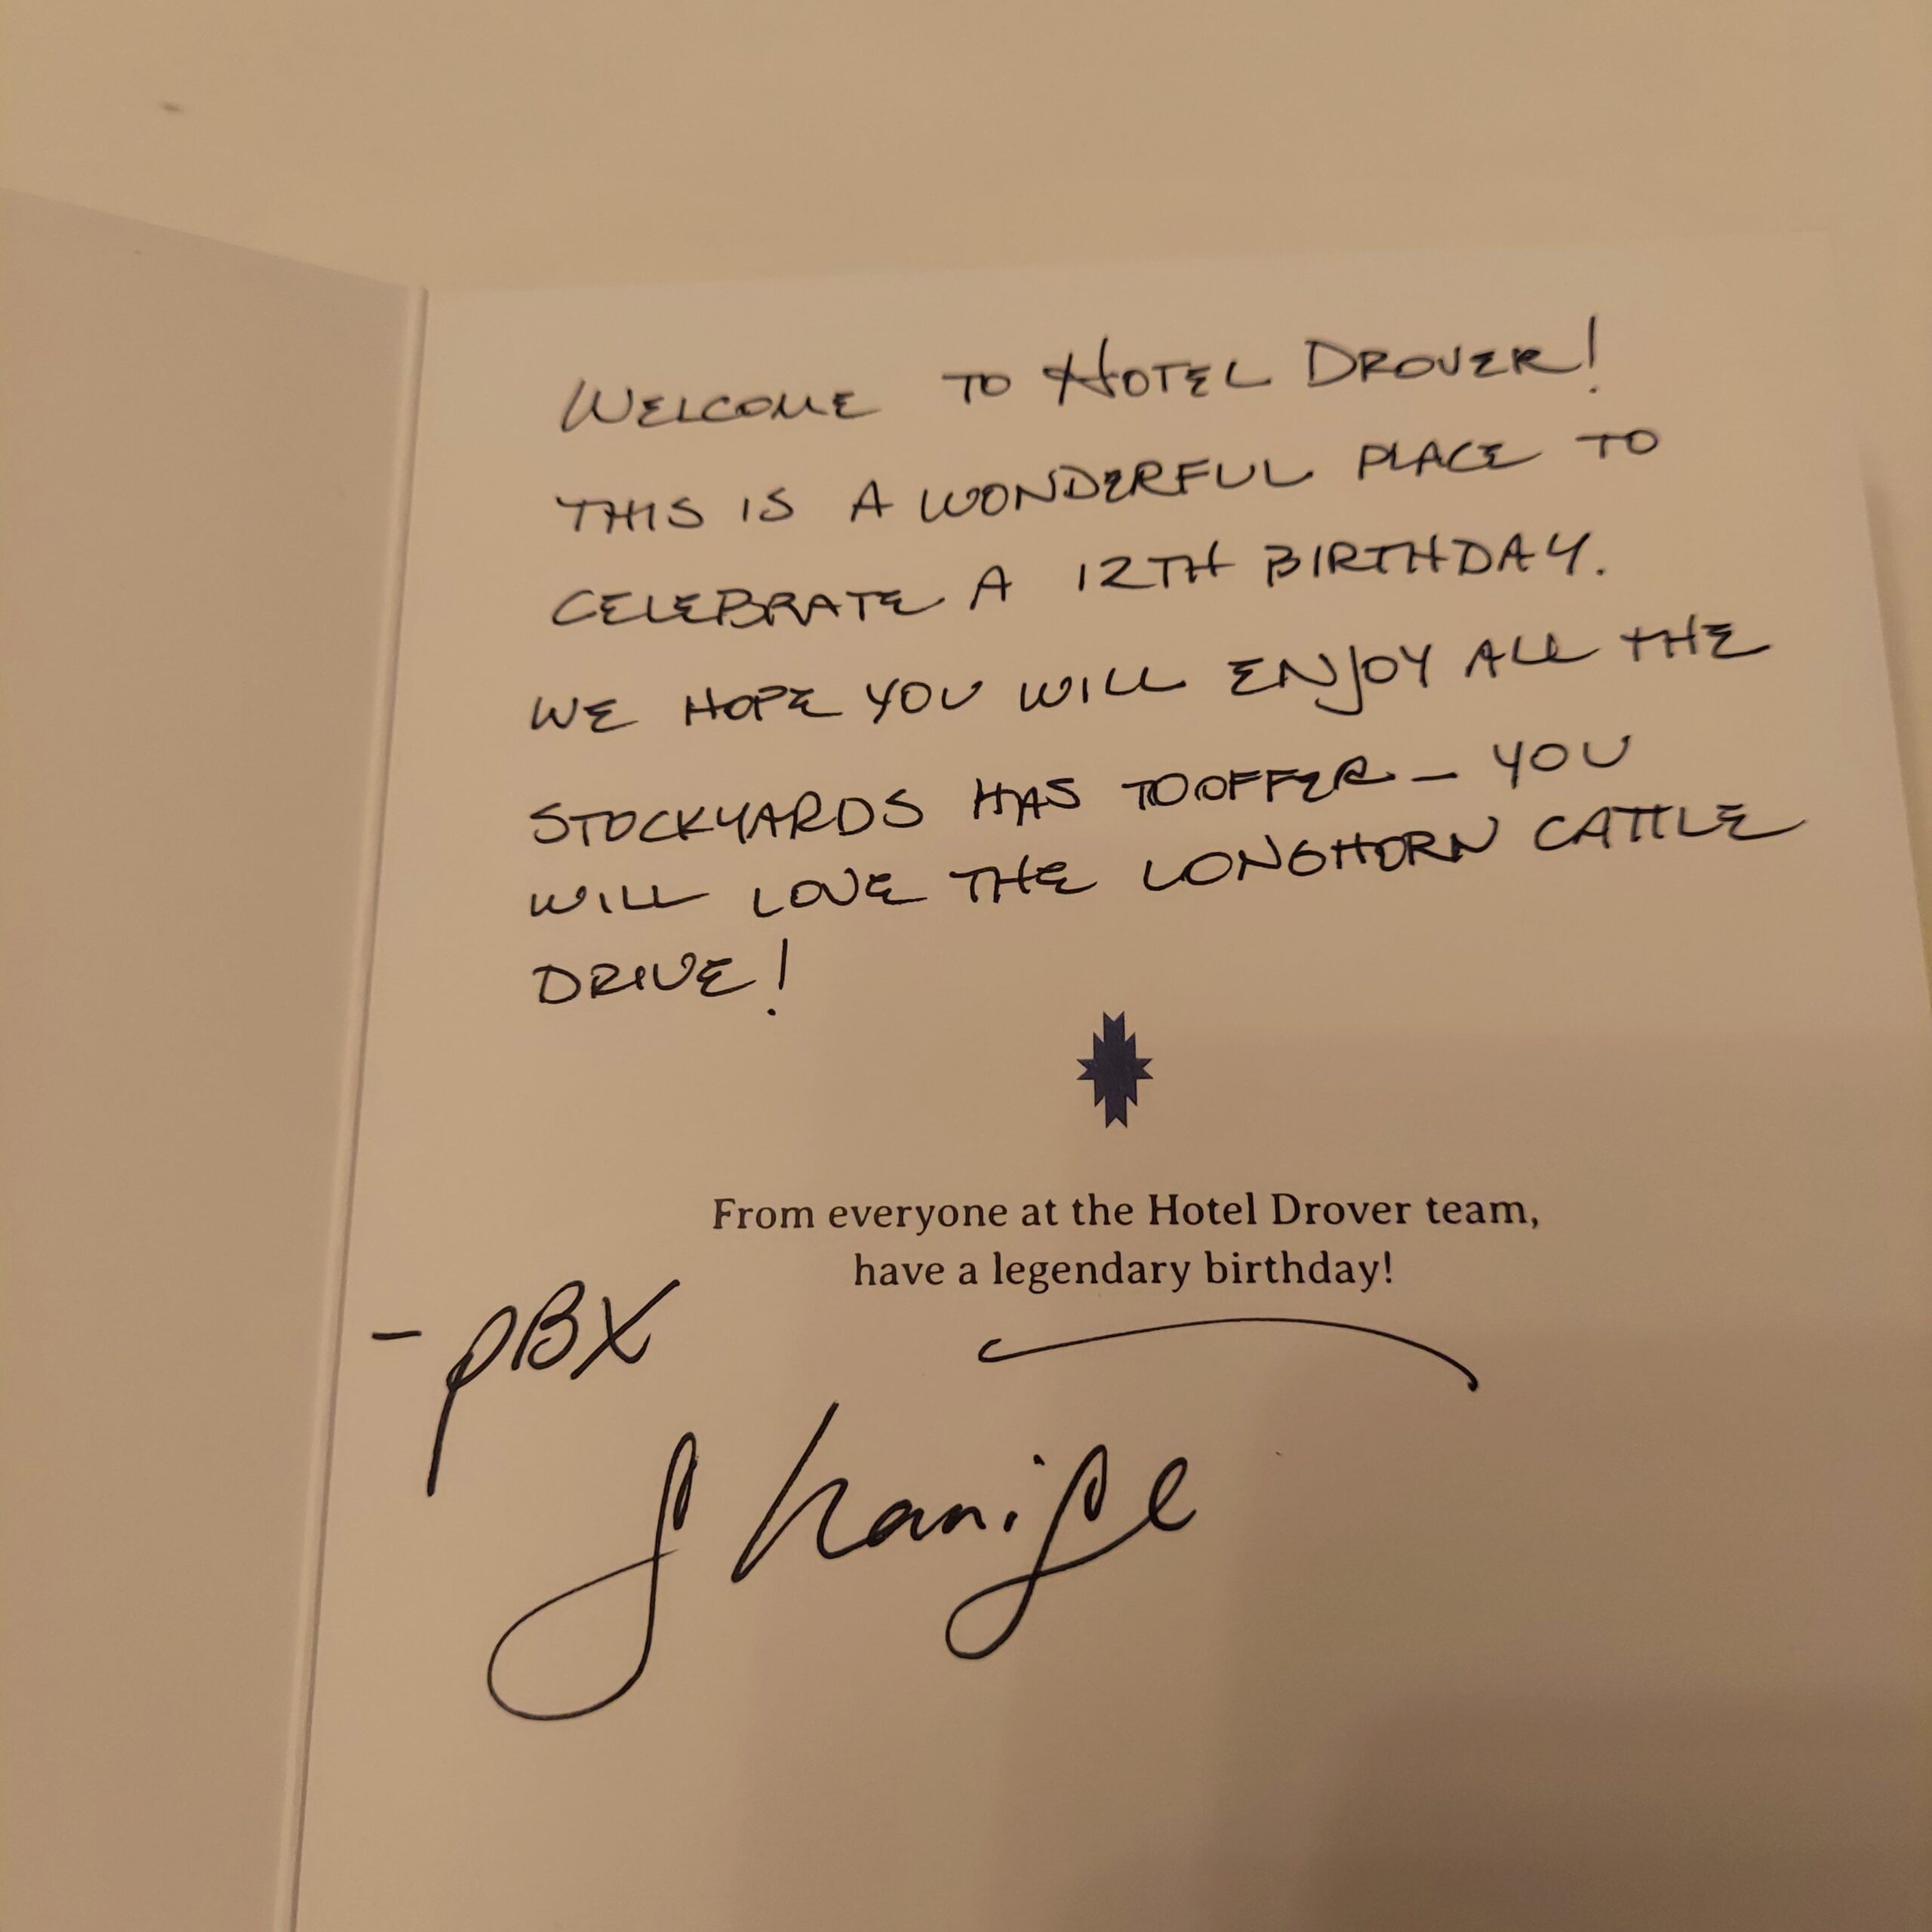 WELCOME TO HOTEL DROVER!
THIS IS A WONDERFUL PLACE TO
CELEBRATE A 12TH BIRTHDAY.
WE HOPE YOU WILL ENJOY ALL THE
STOCKYARDS HAS TO OFFER – YOU
WILL LOVE THE LONGHORN CATTLE
DRIVE!
From everyone at the Hotel Drover team,
have a legendary birthday!
– PBX